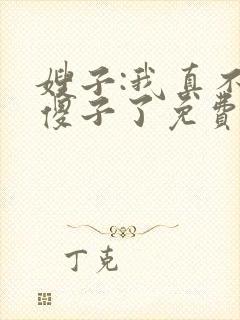 嫂子:我真不
傻子了免费
丁克